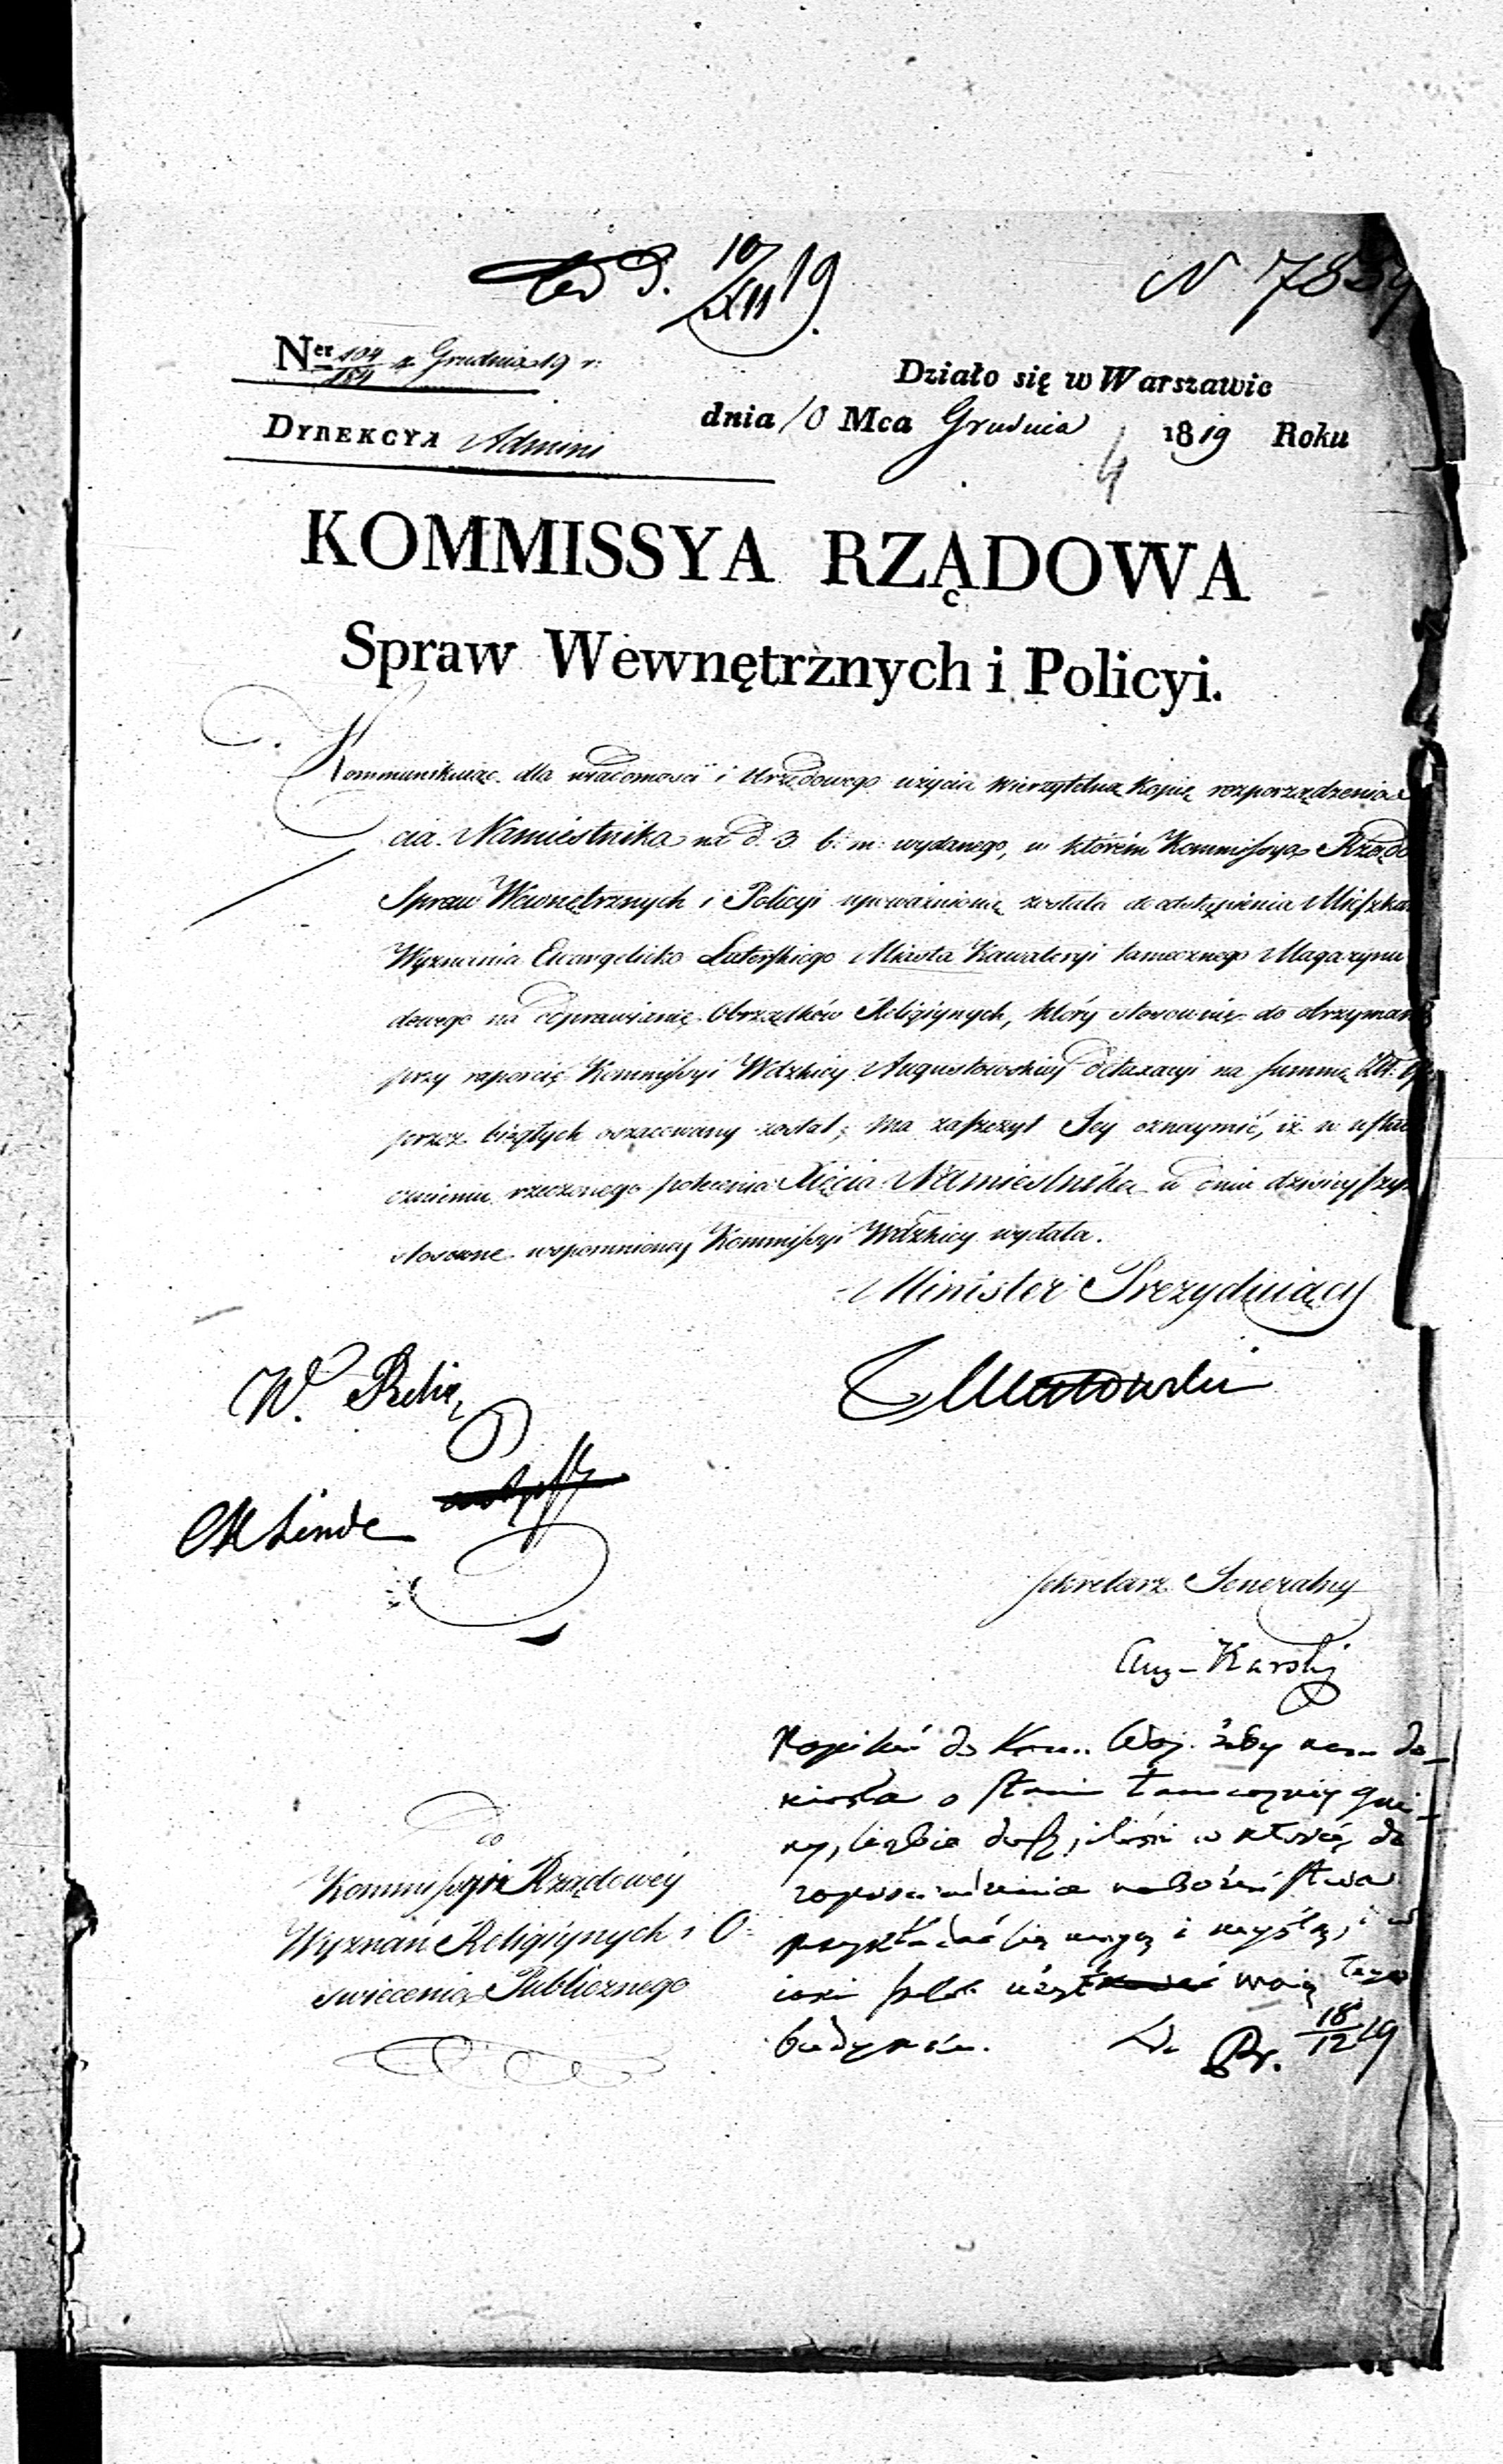 d. 10/XII 19.
N 7839
Ner 104/184 z Grudnia 19 r.
Działo się w Warszawie
dnia 10 Mca Grudnia 1819 Roku
4
DYREKCYA Admini
KOMMISSYA RZĄDOWA
Spraw Wewnętrznych i Policyi.
Kommunikuiąc dla wiadomości i Urzędowego użycia wierzytelną kopią rozporządzenia
cia Namiestnika na d. 3. b: m: wydanego, w którém Kommissya Rządo
Spraw Wewnętrznych i Policyi upoważnioną została do odstąpienia Mieszka
Wyznania Ewangelicko Luterskiego Miasta Kawaleryi tamecznego Magazynu
dowego na odprawianie Obrządków Religiynych, który stosownie do otrzyman
przy raporcie Kommissyi Wdzkiey Augustowskiey detaxacyi na summę Złł.
przez biegłych oszacowany został; ma zaszczyt Jey oznaymić, iż w usku
cznieniu rzeczonego polecenia Xięcia Namiestnika w dniu dzisieyszy
stosowne wspomnioney Kommissyi Wdzkiey wydała.
Minister Prezyduiący
W. Relig
Linde
Sekretarz Generalny
Aug. Karski
Napisać do Kom. Woj. żeby nam do-
niosła o stanie tameczney gmi-
ny, liczbie dusz, ilości w któréy do
zaprowadzenia nabożeństwa
przykładać się mogą i myślą, i w
iaki sposób użyć maią tego
budynku.
18/12 19
Do
Kommissyi Rządowéy
Wyznań Religiynych i O-
świecenia Publicznego